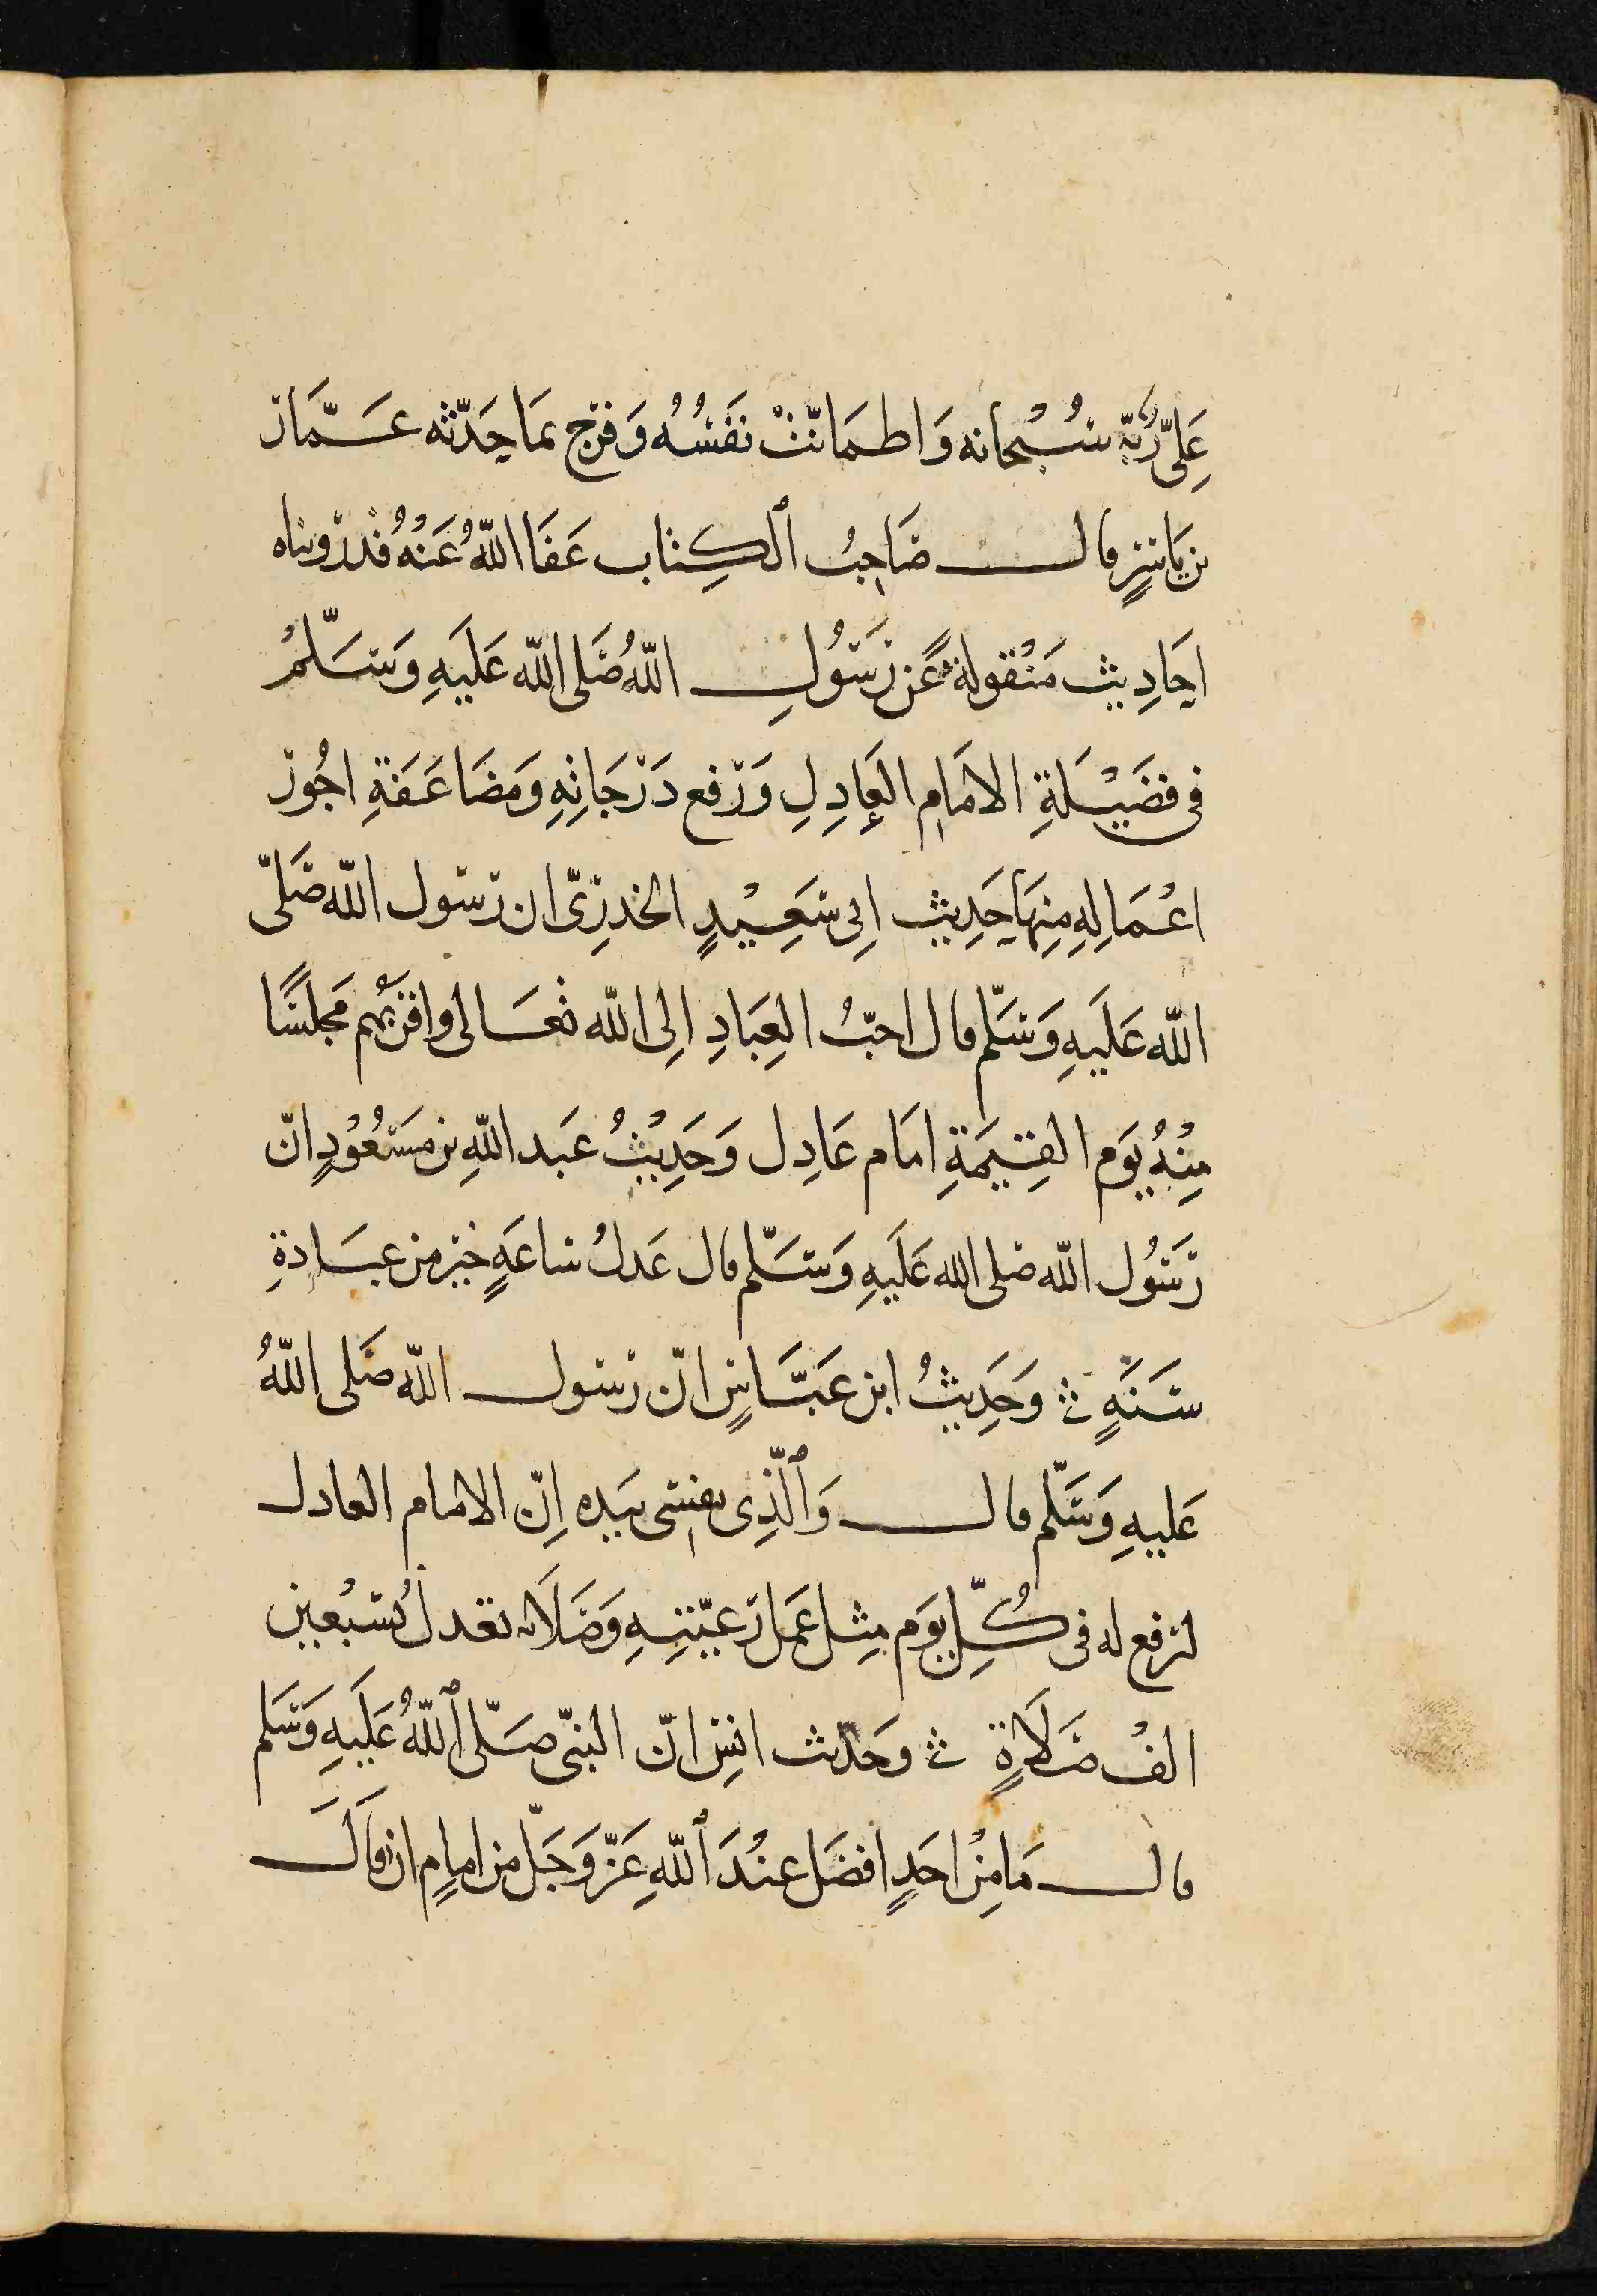 عَلِىّ رُبّه سُبْحانه وَاطمَانّتْ نَفسُهُ وَفرّج بمَا حَدّثه عَمَّار
بن يَاسِرٍ قال صَاحِبُ ٱلكِتاب عَفَا اللّهُ عَنْهُ قدْ رُوّيناه
احَادِيث مَنْقولة عَن رَسُولِ اللّهُ صَلى اللّه عَلَيهِ وَسَلّمْ
فى فضَيْلَةِ الامَام العَادِلِ وَرَفع دَرَجَاتِهِ وَمضَاعَفَةِ اجُور
اعْمَالِهِ مِنهَا حَدِيث ابى سَعِيْدٍ الخدرِىّ ان رَسول اللّه صَلّى
اللّه عَلَيهِ وَسَلّم قال احبّ العِبَادِ الِى اللّه تعَالى واقربهُم مَجلسًا
مِنْهُ يوَم القِيمَةِ امَام عَادِل وَحَدِيْثُ عَبد اللّهِ بن مسَعُوْدٍ انّ
رَسُول اللّه صَلى الله عَلَيهِ وَسَلّم قال عَدلُ ساعَةٍ خير من عبَادةِ
سَنَةٍ ۞ وَحَدِيثُ ابن عَبَّاسٍ انّ رَسول اللّه صَلى اللّهُ
عَليهِ وَسَلّم قال وَٱلّذِى نفسى بيَده اِنّ الامام العادل
لترفع له فى كُلِّ يوَم مِثِل عَمل رَعيّتِهِ وَصَلَاته تعدل سُبْعين
الفْ صَلَاةٍ ۞ وحَدّيث انسِ انّ النبىّ صَلّى ٱللّهُ عَلَيهِ وَسَلم
قال مَا مِنْ احَدٍ افضَل عِنْدَ ٱللّهِ عَزّ وَجَلّ من امامٍ ان قَالَ